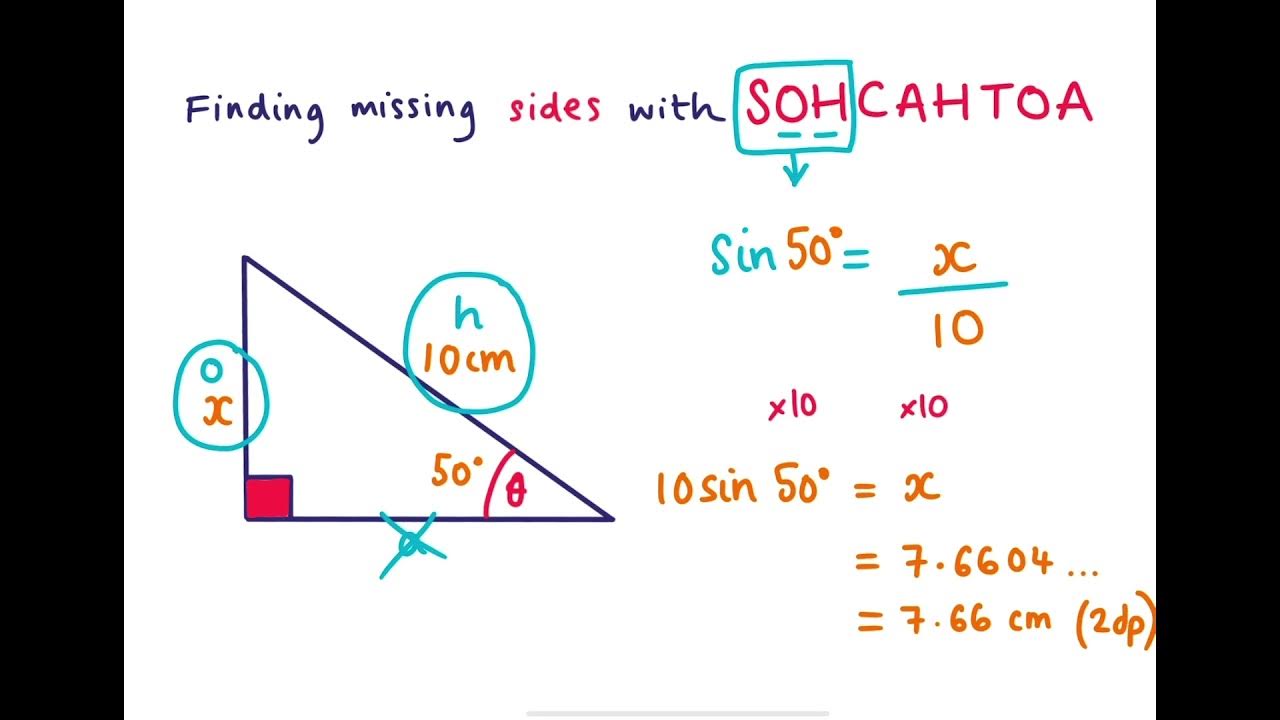 Finding missing sides with SOHCAHTOA
sin 50° = x
10
h
10cm
o
x
×10 ×10
50° θ
10 sin 50° = x
a
= 7.6604 ...
= 7.66 cm (2dp)